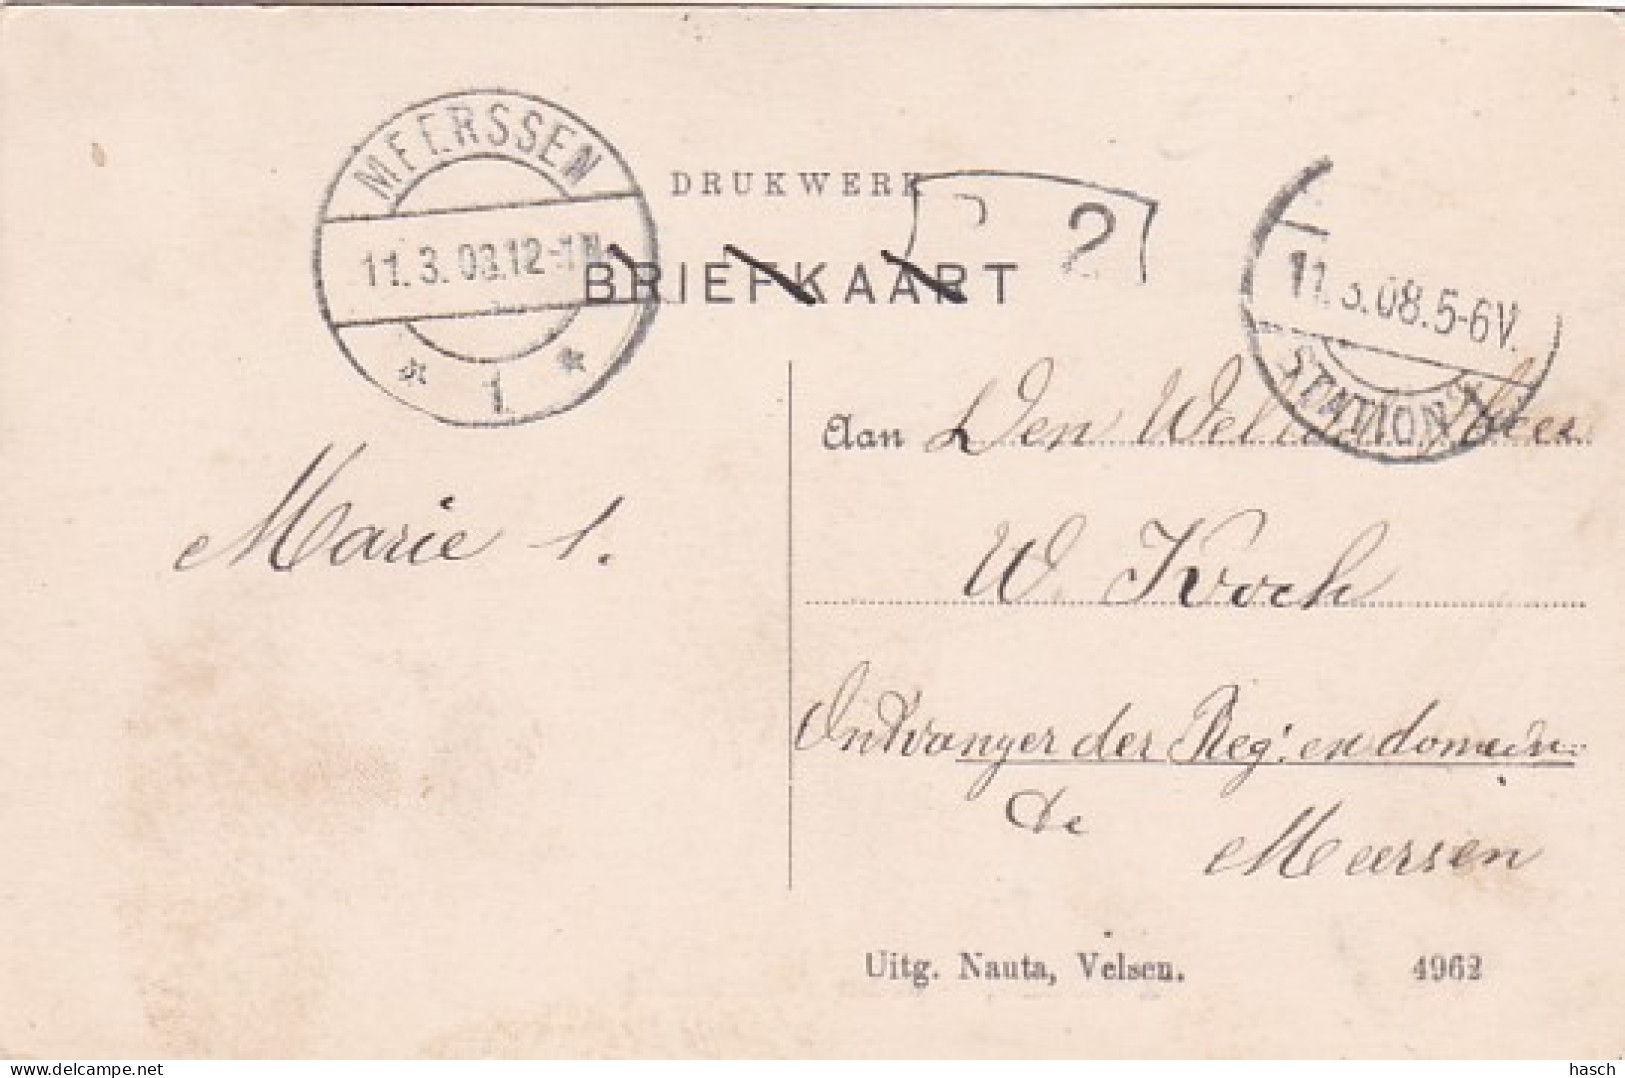 MEERSSEN
11.3.08.12-1N
1
DRUKWERK
BRIEFKAART
2
11.3.08.5-6V.
STATION
Aan Den Weled. Heer
W. Kroch
Marie S.
Ontvanger der Reg: en domein:
te
Meersen
Uitg. Nauta, Velsen. 4962
delcampe.net
hasch